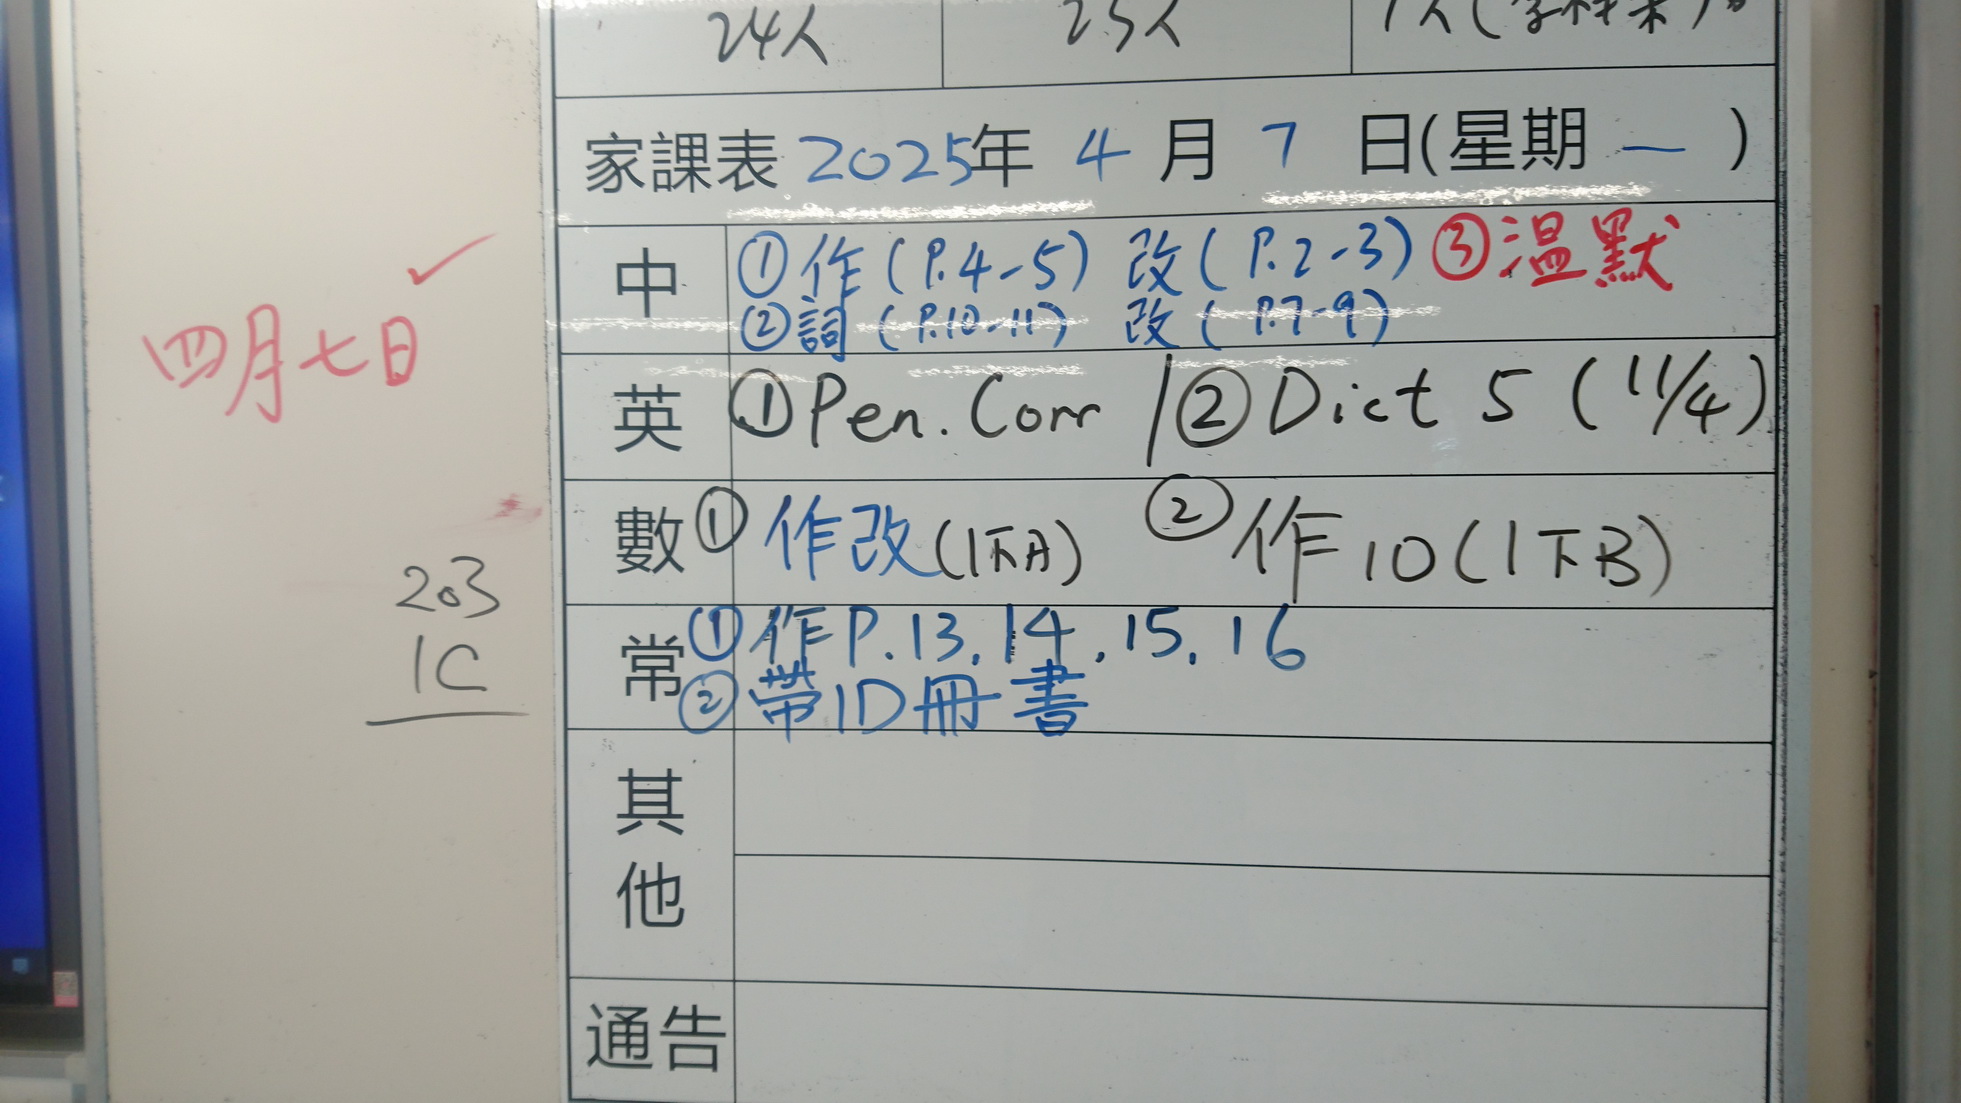 24人 23人 1人(
家課表 2025年 4 月 7 日(星期 一 )
四月七日 ✓
中 ①作(P.4-5) 改(P.2-3) ③溫默
②詞(P.10-11) 改(P.7-9)
英 ①Pen. Corr / ②Dict 5 (11/4)
數 ①作改(1下A) ②作10(1下B)
203
1C
常 ①作P.13.14.15.16
②帶1D冊書
其他
通告